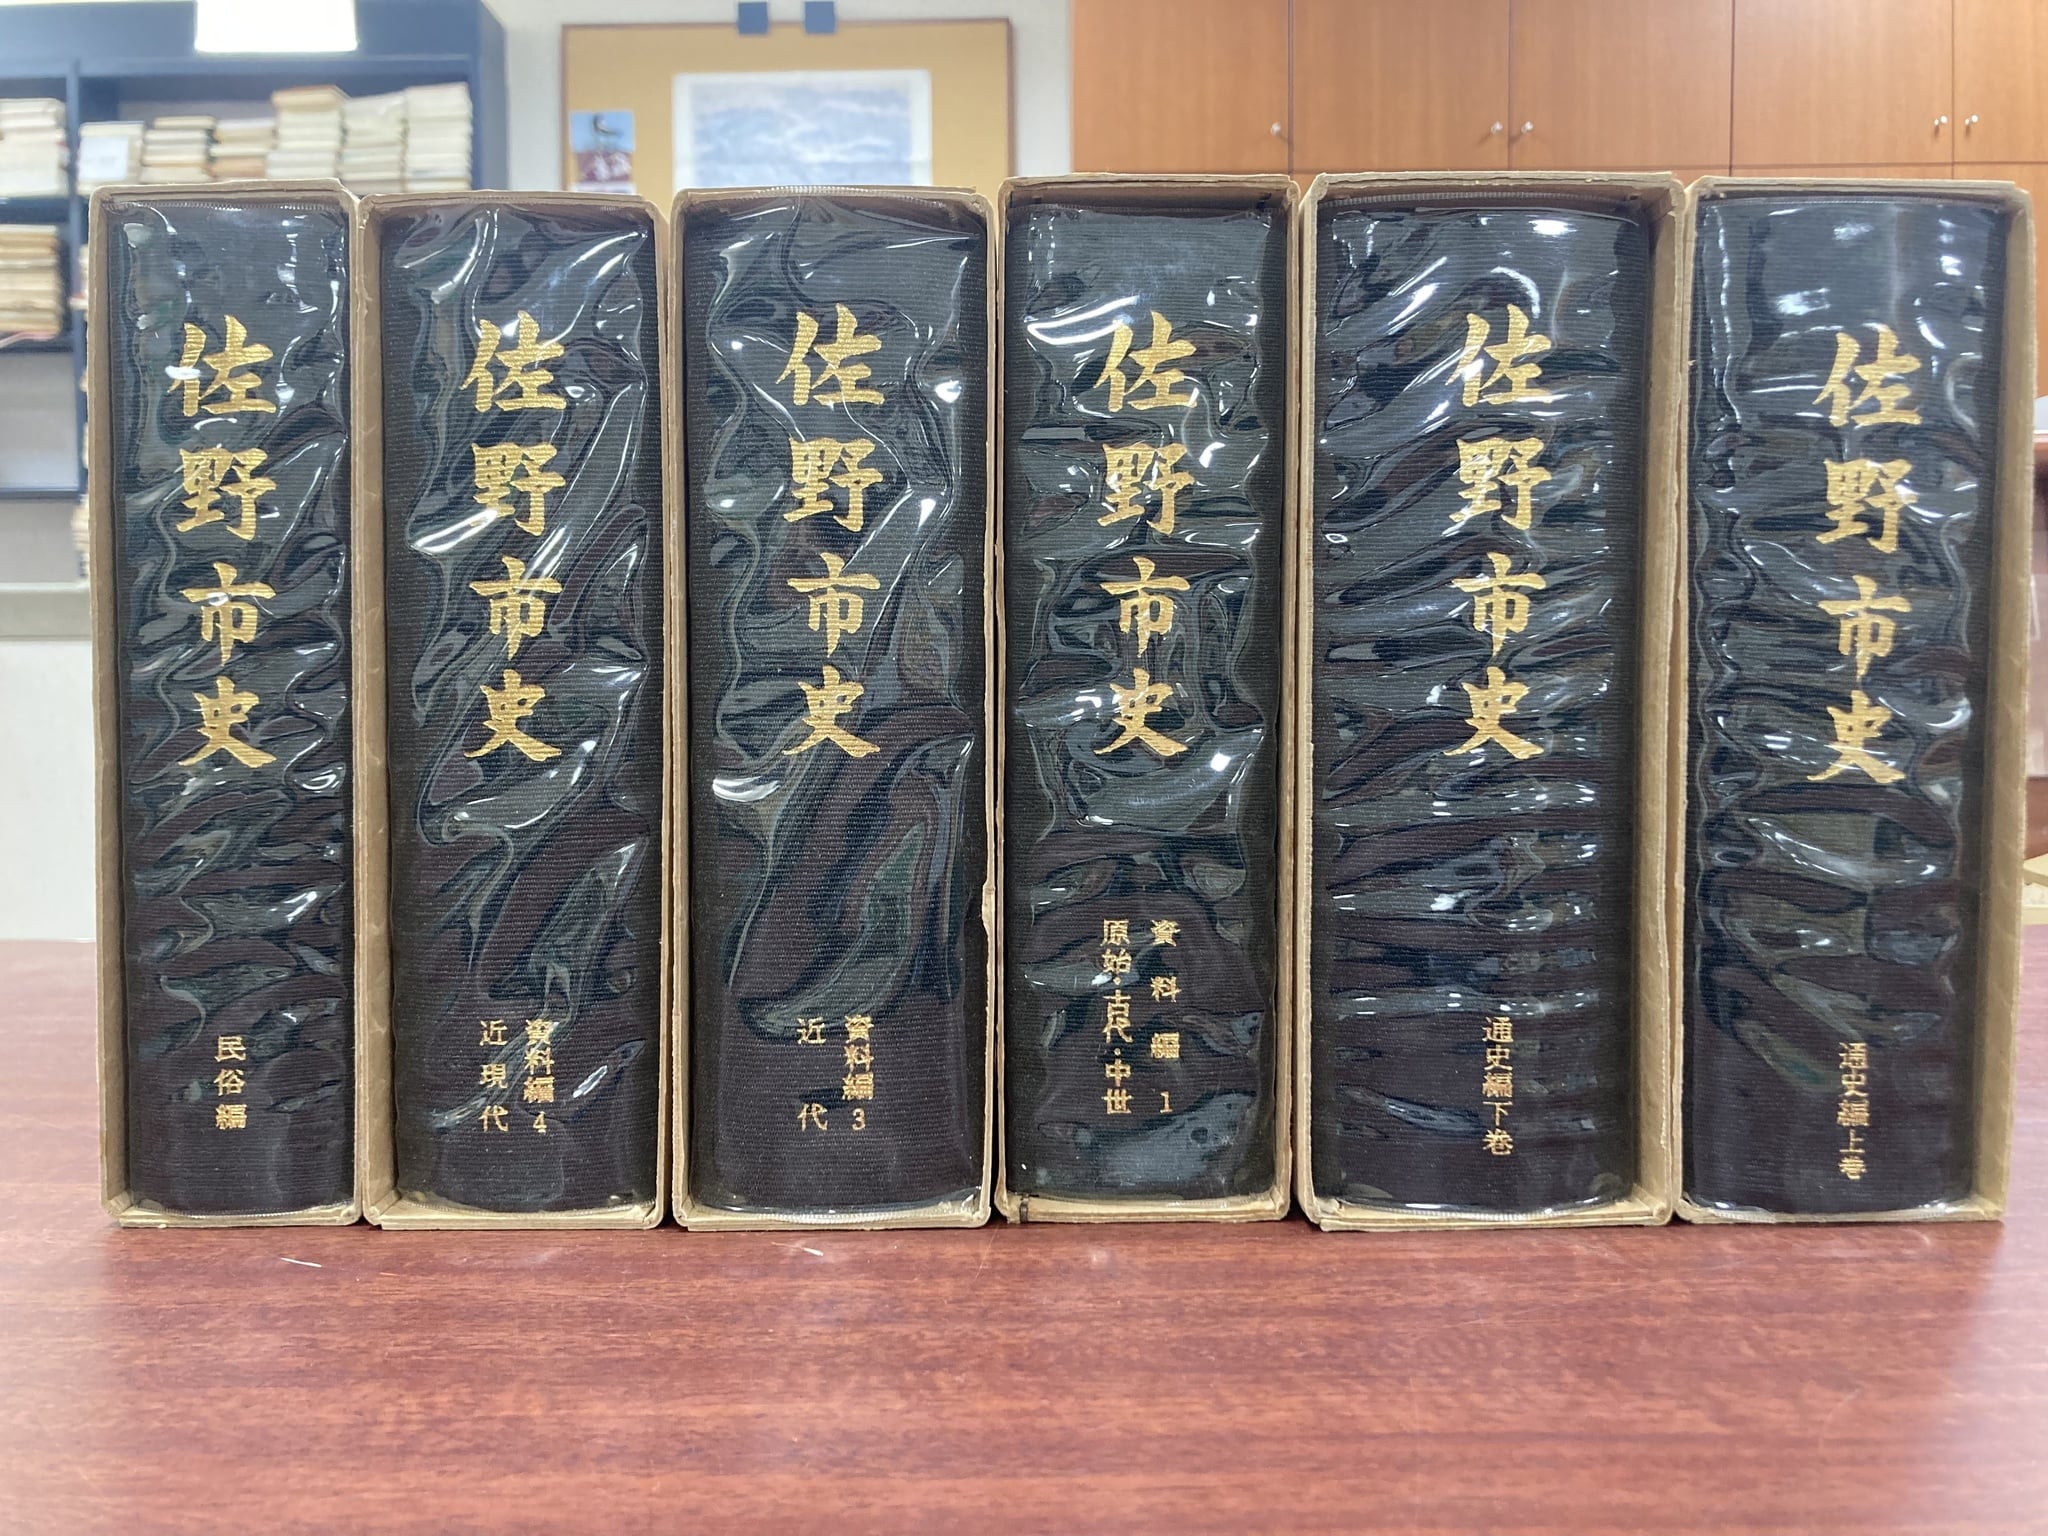 佐野市史
民俗編
佐野市史
資料編4
近現代
佐野市史
資料編3
近代
佐野市史
資料編1
原始・古代・中世
佐野市史
通史編下巻
佐野市史
通史編上巻